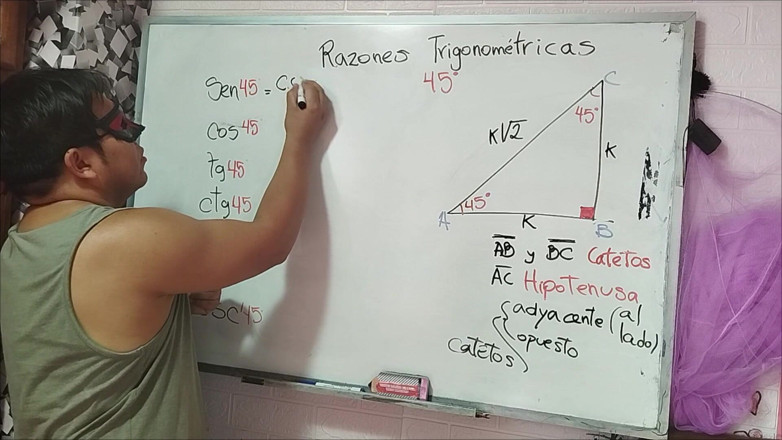 Razones Trigonométricas
45°
Sen45 = co
cos 45
Tg45
ctg45
sc 45
C
45°
K√2
K
A
45°
K
B
AB y BC Catetos
AC Hipotenusa
catetos
adyacente (al lado)
opuesto